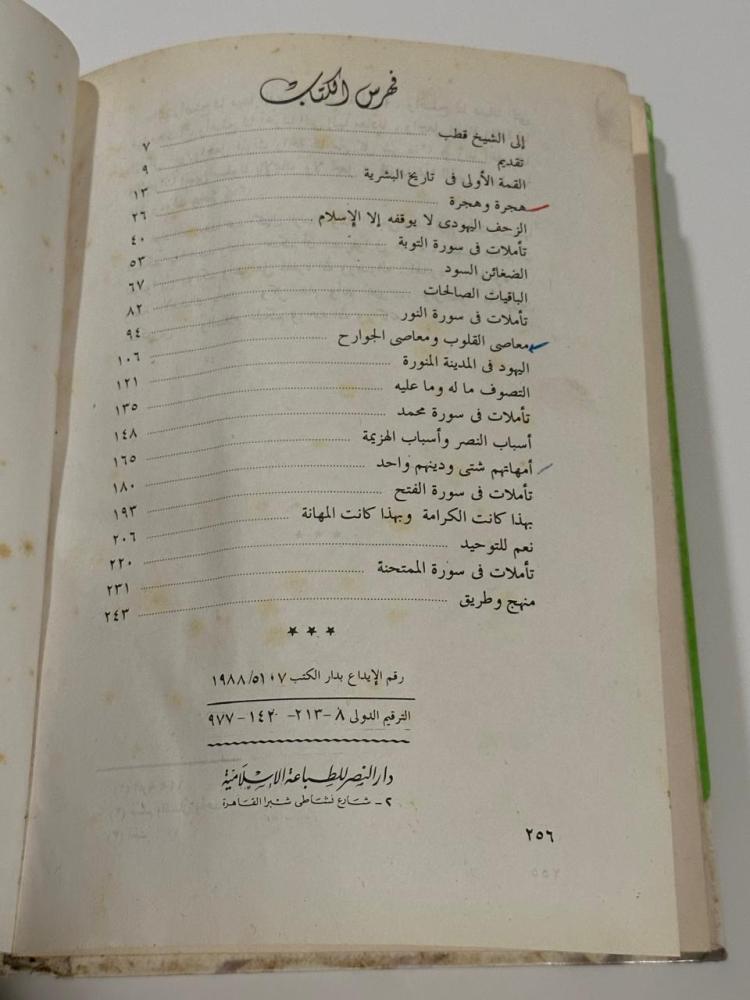 فهرس الكتاب
إلى الشيخ قطب ٧
تقديم ٩
القمة الأولى فى تاريخ البشرية ١٣
هجرة وهجرة ٢٦
الزحف اليهودى لا يوقفه إلا الإسلام ٤٠
تأملات فى سورة التوبة ٥٣
الضغائن السود ٦٧
الباقيات الصالحات ٨٢
تأملات فى سورة النور ٩٤
معاصى القلوب ومعاصى الجوارح ١٠٦
اليهود فى المدينة المنورة ١٢١
التصوف ما له وما عليه ١٣٥
تأملات فى سورة محمد ١٤٨
أسباب النصر وأسباب الهزيمة ١٦٥
أمهاتهم شتى ودينهم واحد ١٨٠
تأملات فى سورة الفتح ١٩٣
بهذا كانت الكرامة وبهذا كانت المهانة ٢٠٦
نعم للتوحيد ٢٢٠
تأملات فى سورة الممتحنة ٢٣١
منهج وطريق ٢٤٣
رقم الإيداع بدار الكتب ١٩٨٨/٥١٠٧
الترقيم الدولى ٨ - ٢١٣ - ١٤٢ - ٩٧٧
دار النصر للطباعة الإسلامية
٢ - شارع نشاطى شبرا القاهرة
٢٥٦